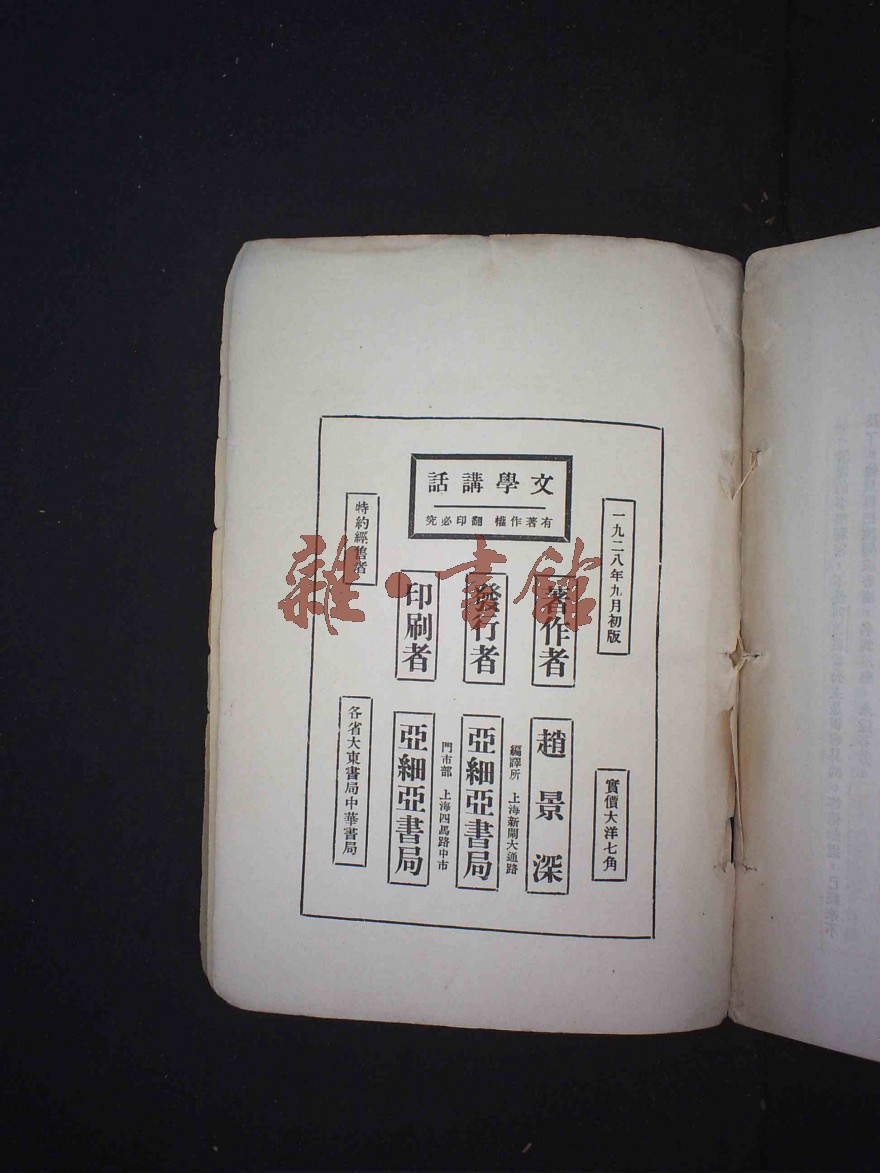 文學講話
有著作權 翻印必究
一九二八年九月初版
實價大洋七角
著作者
趙景深
發行者
編譯所 上海新閘大通路
亞細亞書局
門市部 上海四馬路中市
印刷者
亞細亞書局
特約經售者
各省大東書局中華書局
雜·書館